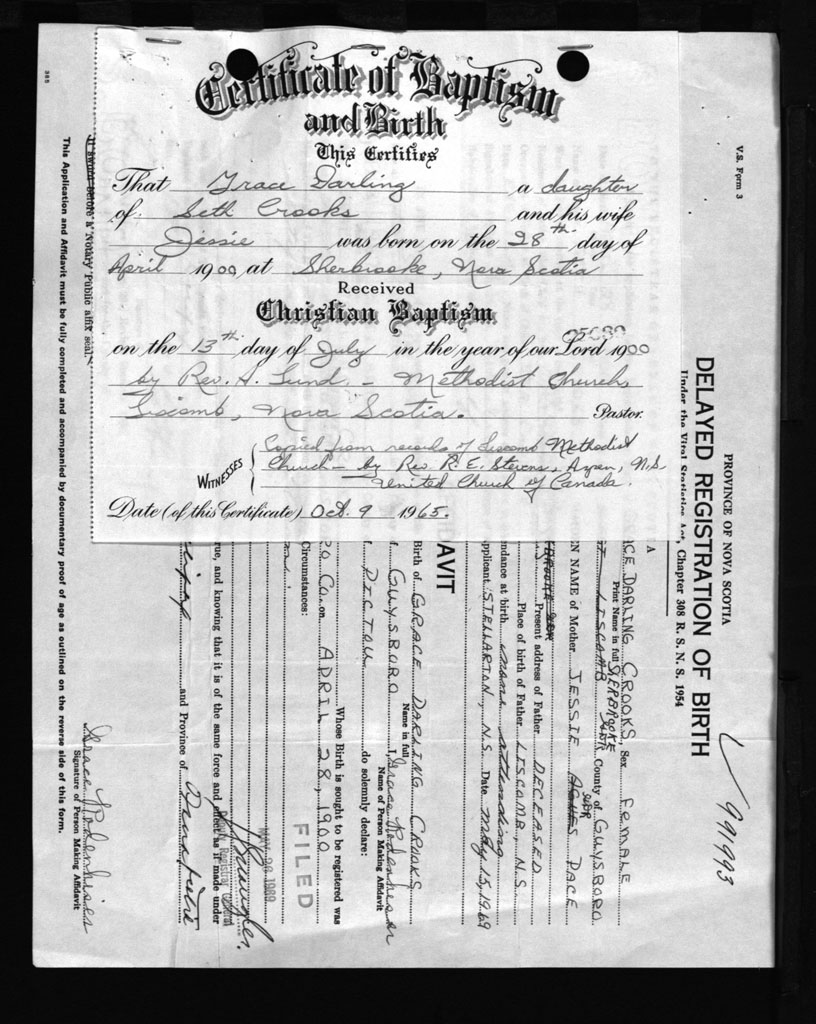 Certificate of Baptism
and Birth
This Certifies
That Grace Darling a daughter
of Seth Crooks and his wife
Jessie was born on the 28th day of
April 1900 at Sherbrooke, Nova Scotia
Received
Christian Baptism
05089
on the 13th day of July in the year of our Lord 1900
by Rev. A. Lund - Methodist Church,
Liscomb, Nova Scotia. Pastor.
WITNESSES
Copied from records of Liscomb Methodist
Church - by Rev. R. E. Stevens, Aspen, N.S.
United Church of Canada.
Date (of this Certificate) Oct. 9 1965.
V.S. Form 3
991993
PROVINCE OF NOVA SCOTIA
DELAYED REGISTRATION OF BIRTH
Under the Vital Statistics Act, Chapter 308 R. S. N. S. 1954
A
ACE DARLING CROOKS Sex FEMALE
Print Name in full
SHERBROOKE
LISCOMB County of GUYSBORO
EN NAME of Mother JESSIE AGNES PACE
Present address of Father DECEASED
Place of birth of Father LISCOMB, N.S.
ndance at birth none attending
pplicant STELLARTON, N.S. Date May 15, 1969
AVIT
Birth of GRACE DARLING CROOKS
Name in full
GUYSBORO I, Grace Rodenhiser
Name of Person Making Affidavit
PICTOU do solemnly declare:
Whose Birth is sought to be registered was
ro Co. on APRIL 28, 1900
Circumstances:
FILED
MAY 20 1969
rue, and knowing that it is of the same force and effect as if made under
and Province of Nova Scotia
Grace Rodenhiser
Signature of Person Making Affidavit
If sworn before a Notary Public affix seal.
This Application and Affidavit must be fully completed and accompanied by documentary proof of age as outlined on the reverse side of this form.